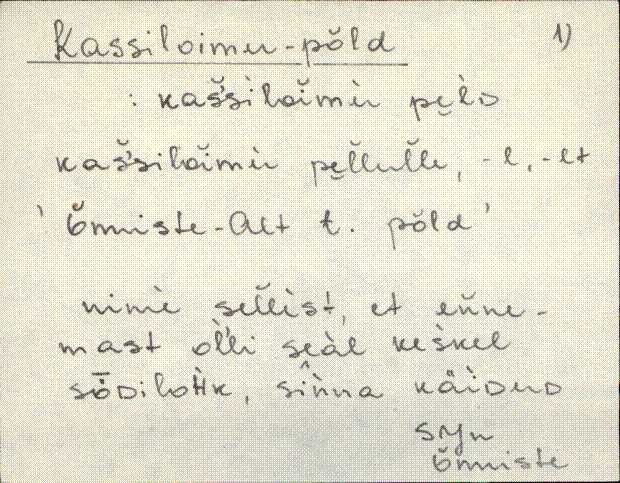 Kassiloimu-põld 1)
: kaš̀siloĭmù pe̮lᴅ
kaš̀siloĭmù pe̮l̆lul̆le, -l, -lt
' Õmniste-Alt t. põld '
nimè sel̆list, et en̆ne-
mast ol̀li seàl keskel
sōᴅilot̀ik, sin̂na käiᴅuᴅ
Syn
Õmniste